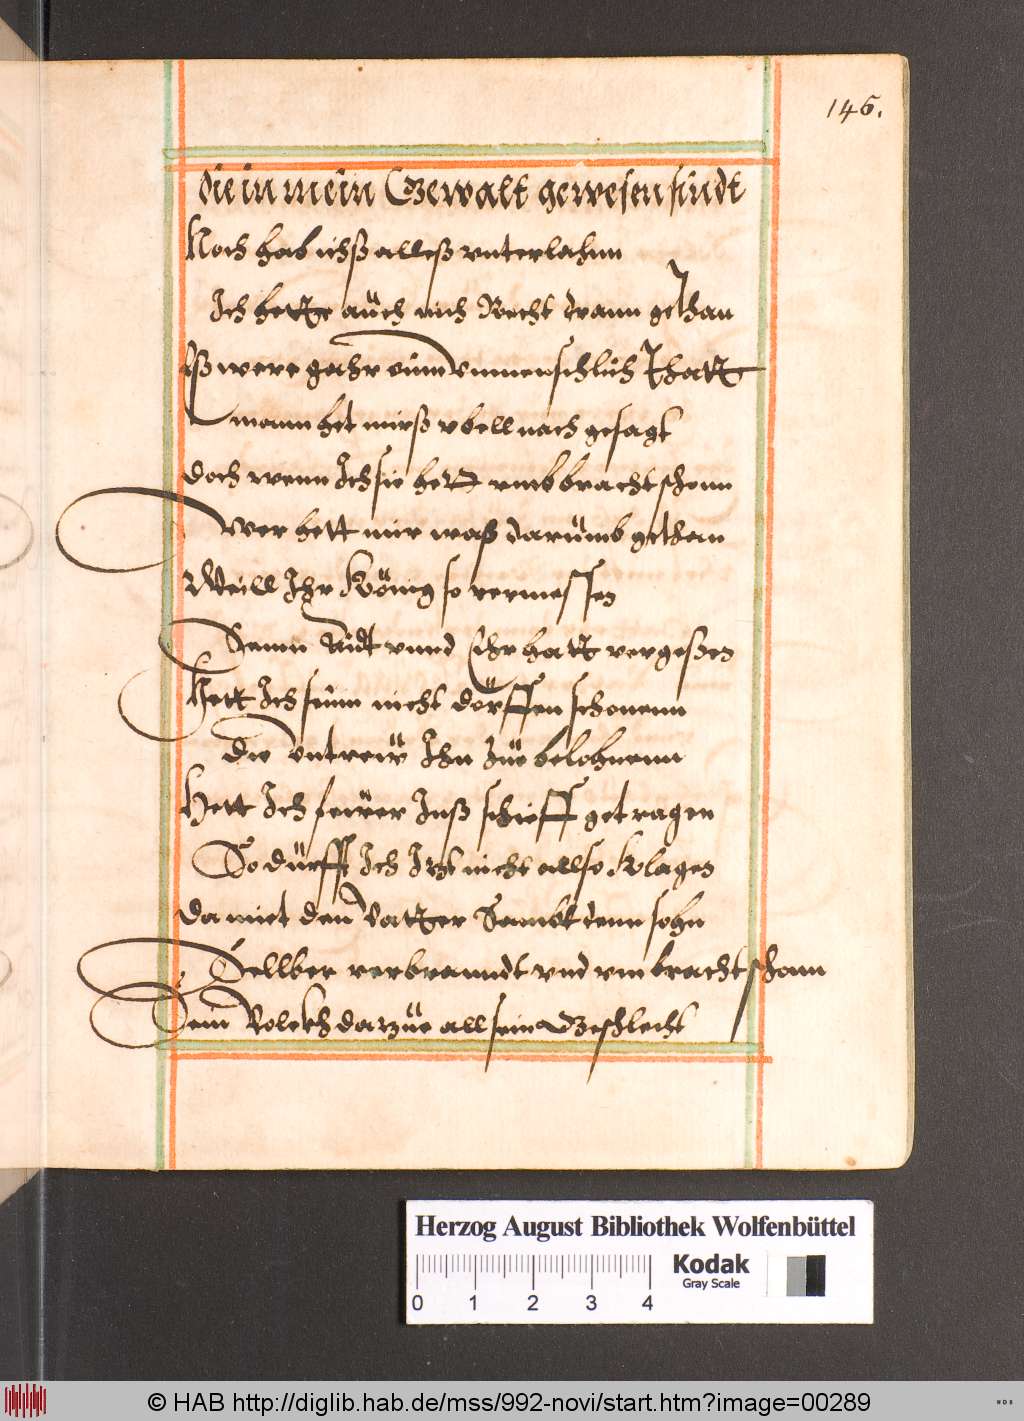 146.
die in mein Gewalt gewesen sindt
Noch hab ichß alleß vnterlahnn
Ich hette auch nich Recht drann gethan
Eß were gahr einn vnmenschlich Thatt
mann het mirß vbell nach gesagt
doch wenn Ich sie hett vmbbracht schonn
Wer hett mir waß darümb gethan
Weill Ihr König so vermessen
Seinn Aidt vnnd Ehr hatt vergeßen
Hett Ich seinn nicht dörffen schonenn
die vntreüw Ihn züe belohnenn
Hett Ich feüer Inß schieff getragen
So dürfft Ich Izt nicht allso klagen
da miet den Vatter Sambt dem sohn
Sellber verbranndt vnd vmbracht schonn
Sein Volckh darzüe all sein Geschlecht
Herzog August Bibliothek Wolfenbüttel
Kodak
Gray Scale
0 1 2 3 4
© HAB http://diglib.hab.de/mss/992-novi/start.htm?image=00289